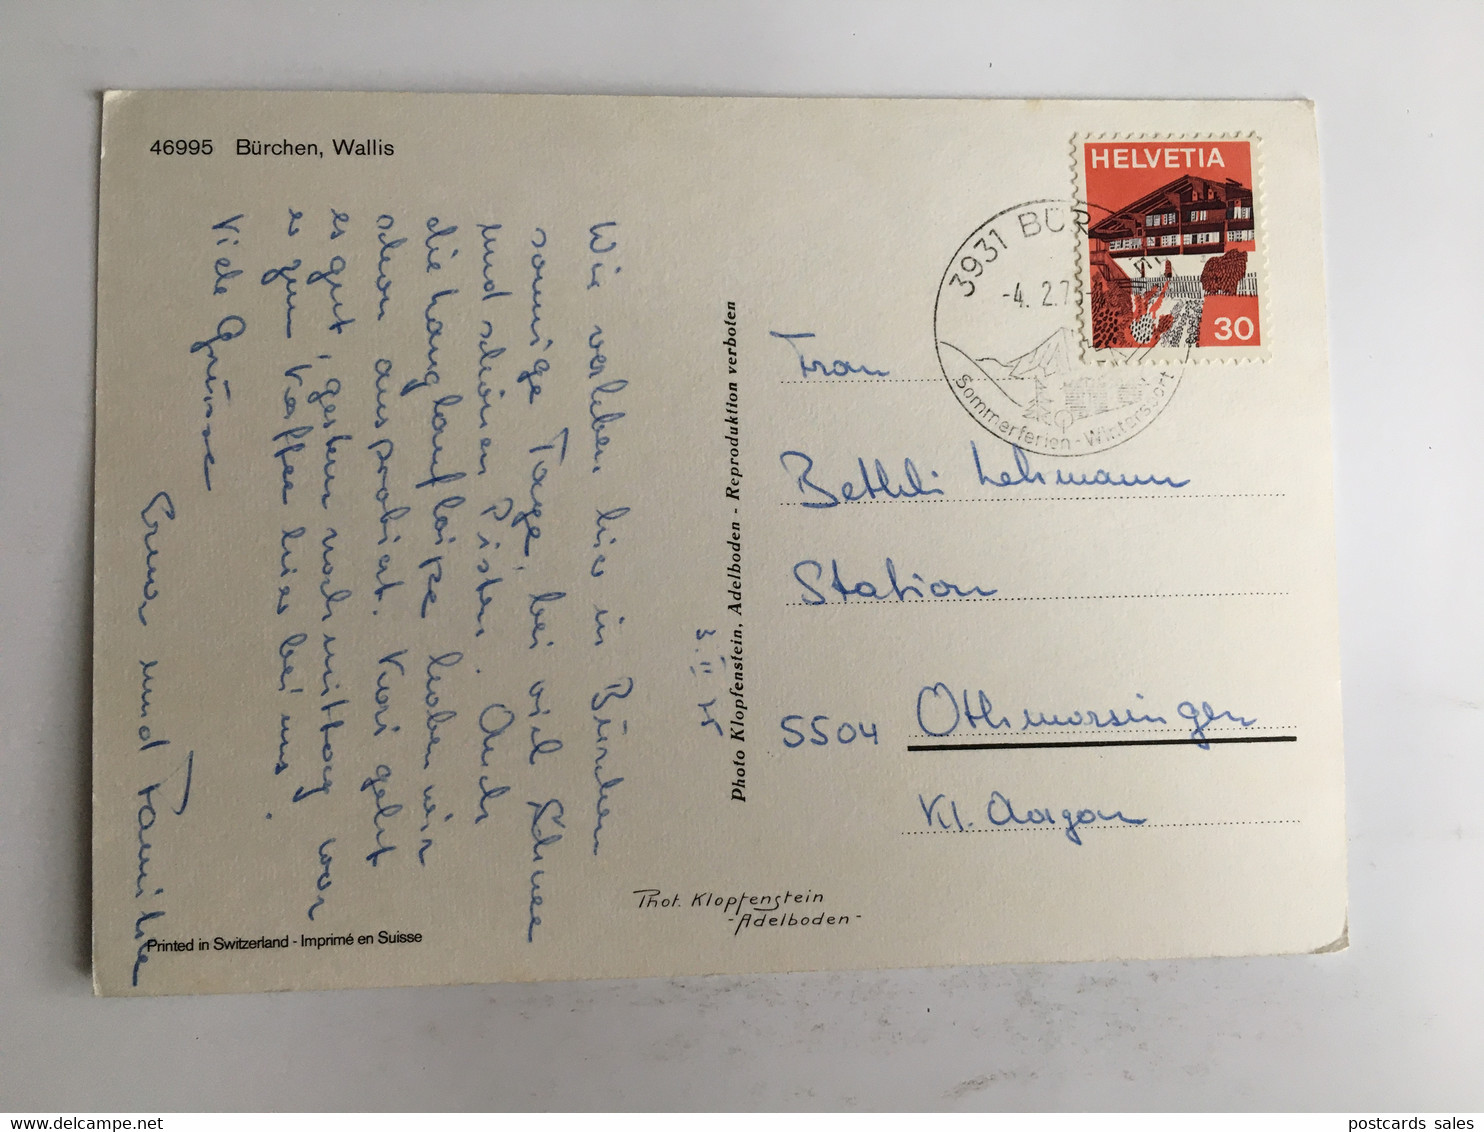 46995 Bürchen, Wallis
HELVETIA
30
3931 BÜR
-4. 2.75
Sommerferien - Wintersport
Wir verleben hier in Bürchen
sonnige Tage, bei viel Schnee
und schönen Pisten. Auch
die Langlaufloipe haben wir
schon ausprobiert. Kari geht
es gut, gestern nachmittag war
er zum Kaffee hier bei uns.
Viele Grüsse
und Familie
3. II 75
Photo Klopfenstein, Adelboden - Reproduktion verboten
Frau
Bethli Lehmann
Station
5504 Othmarsingen
Kt. Aargau
Phot. Klopfenstein
- Adelboden -
Printed in Switzerland - Imprimé en Suisse
postcards sales